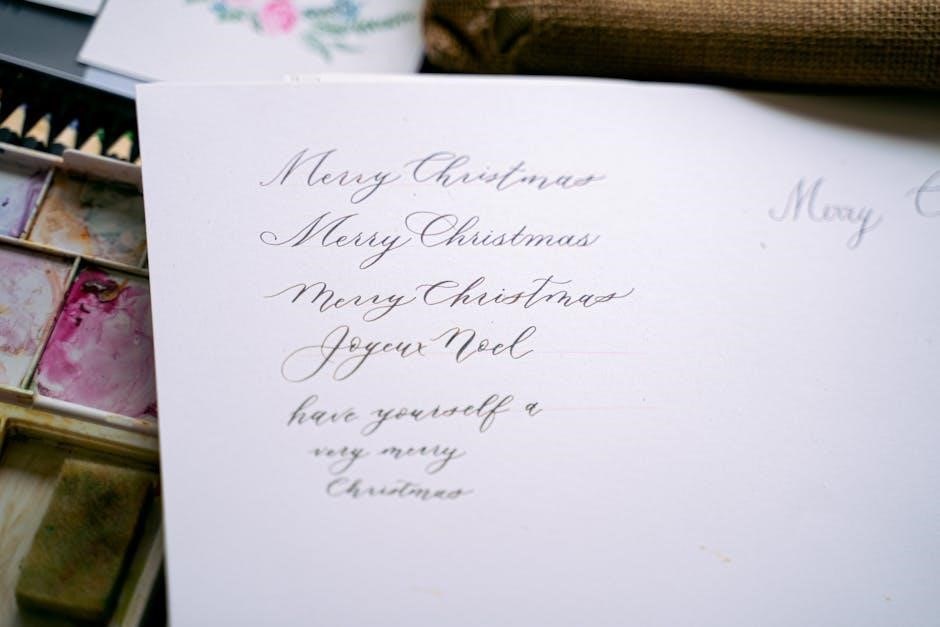 Merry Christmas
Merry Christmas
Merry Christmas
Joyeux Noel
have yourself a
very merry
Christmas
Merry